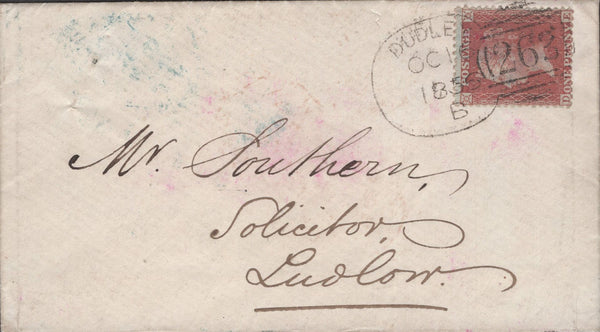 DUDLE
OC
185
B
263
POSTAGE
ONE PENNY
Mr. Southern,
Solicitor,
Ludlow.